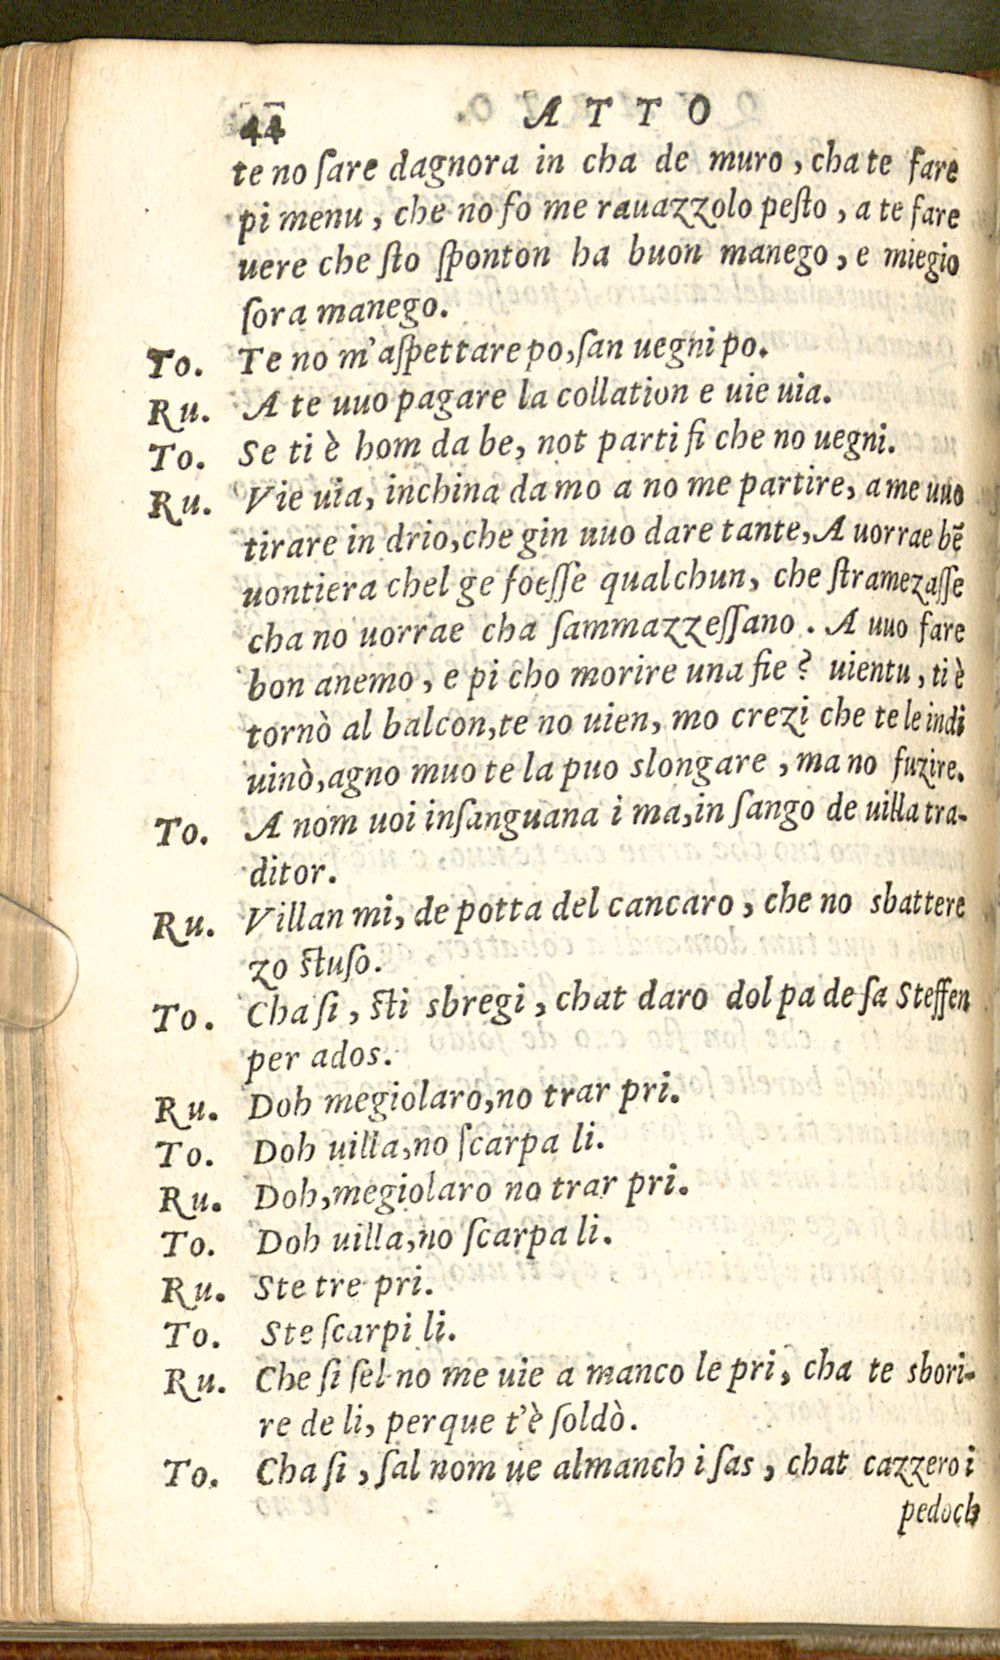 44 ATTO
te no ſare dagnora in cha de muro, cha te fare
pi menu, che no fo me rauazzolo peſto, a te fare
uere che ſto ſponton ha buon manego, e miegio
ſora manego.
To. Te no m'aſpettare po, ſan uegni po.
Ru. A te uuo pagare la collation e uie uia.
To. Se ti è hom da be, not parti fi che no uegni.
Ru. Vie uia, inchina damo a no me partire, a me uuo
tirare in drio, che gin uuo dare tante, A uorrae bẽ
uontiera chel ge foeſſe qualchun, che ſtramezaſſe
cha no uorrae cha ſammazzeſſano. A uuo fare
bon anemo, e pi cho morire una fie? uientu, ti è
tornò al balcon, te no uien, mo crezi che te le indi
uinò, agno muo te la puo slongare, ma no fuzire.
To. A nom uoi inſanguana i ma, in ſango de uilla tra-
ditor.
Ru. Villan mi, de potta del cancaro, che no sbattere
zo ſtuſo.
To. Cha ſi, ſti sbregi, chat daro dol pa de ſa Steffen
per ados.
Ru. Doh megiolaro, no trar pri.
To. Doh uilla, no ſcarpa li.
Ru. Doh, megiolaro no trar pri.
To. Doh uilla, no ſcarpa li.
Ru. Ste tre pri.
To. Ste ſcarpi li.
Ru. Che ſi ſel no me uie a manco le pri, cha te sbori-
re de li, perque t'è ſoldò.
To. Cha ſi, ſal nom ue almanch i ſas, chat cazzero i
pedoch